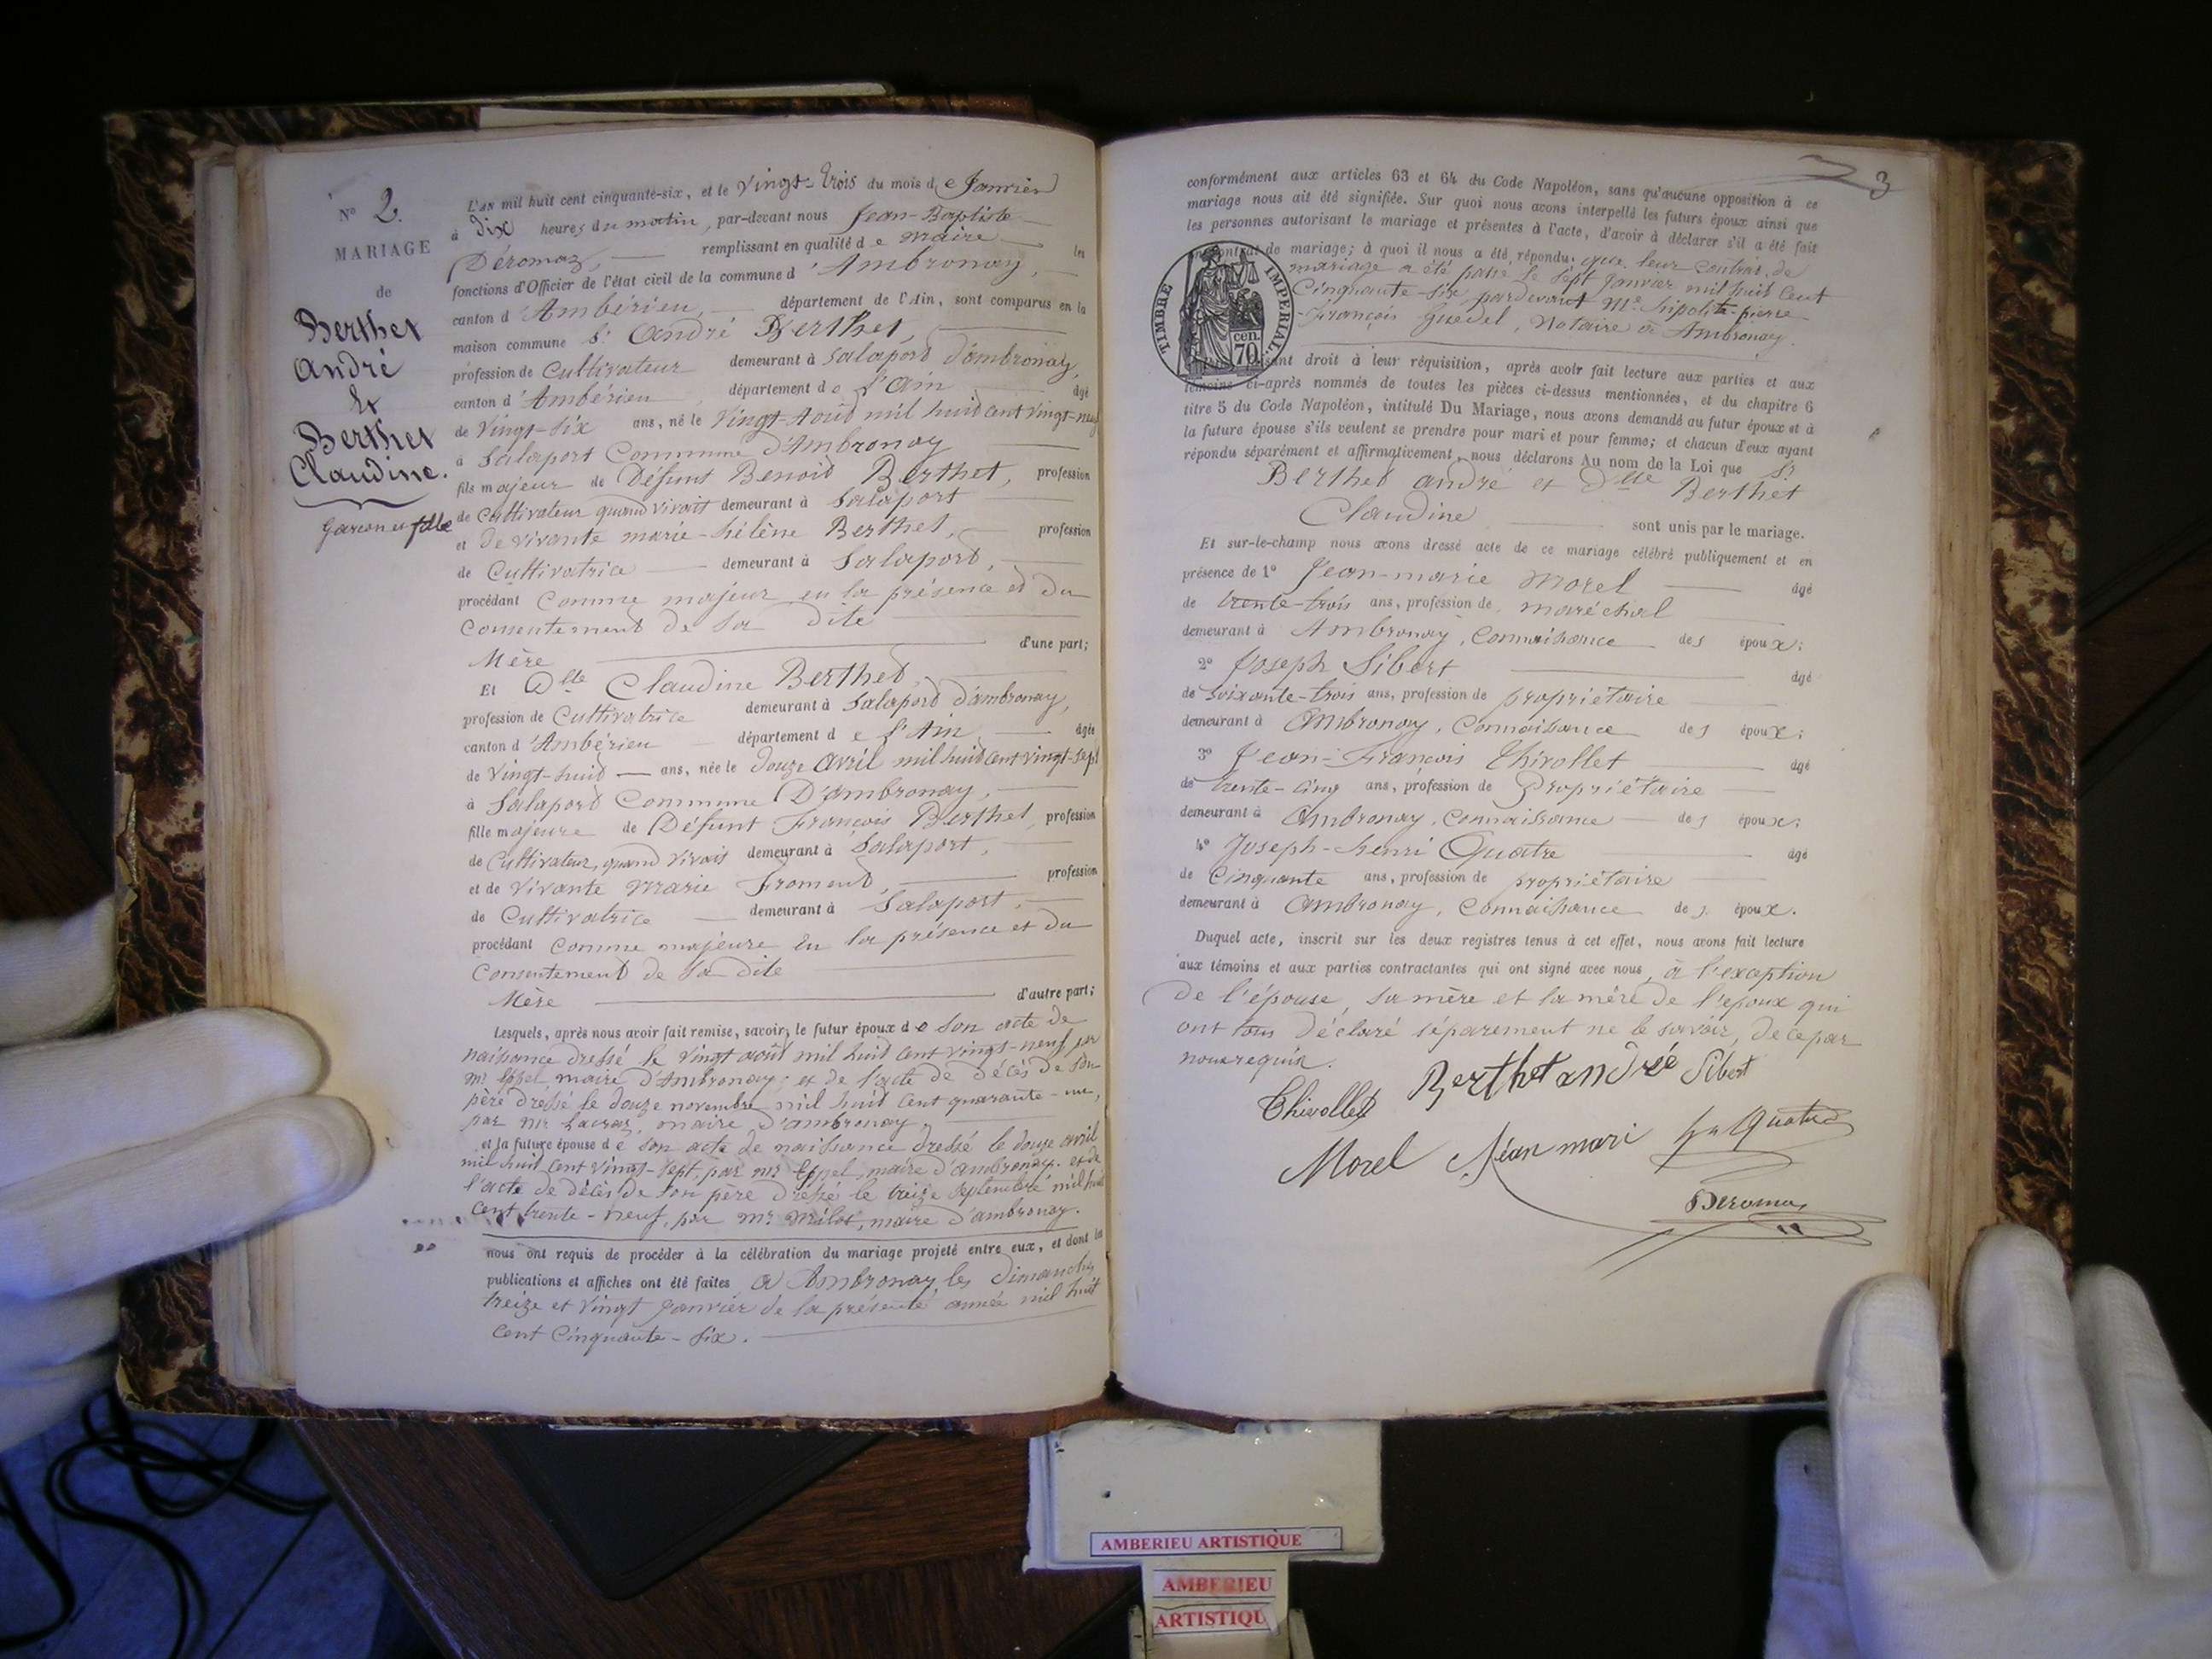 N° 2.
MARIAGE
de
Berthet
André
&
Berthet
Claudine.
garçon et fille
L'AN mil huit cent cinquante-six, et le vingt-trois du mois de Janvier
à dix heures du matin, par-devant nous Jean-Baptiste
Déromaz, remplissant en qualité de maire les
fonctions d'Officier de l'état civil de la commune d'Ambronay,
canton d'Ambérieu, département de l'Ain, sont comparus en la
maison commune Sr André Berthet,
profession de Cultivateur demeurant à Salaport d'ambronay,
canton d'Ambérieu, département de l'Ain âgé
de vingt-six ans, né le vingt-Août mil huit cent vingt-neuf
à Salaport Commune d'Ambronay
fils majeur de Défunt Benoit Berthet, profession
de Cultivateur quand vivait demeurant à Salaport
et de vivante marie-hélène Berthet, profession
de Cultivatrice demeurant à Salaport,
procédant comme majeur en la présence et du
consentement de sa dite
Mère d'une part;
Et Dlle Claudine Berthet,
profession de Cultivatrice demeurant à Salaport d'ambronay,
canton d'Ambérieu département de l'Ain, âgée
de vingt-huit ans, née le douze avril mil huit cent vingt-sept
à Salaport Commune D'ambronay,
fille majeure de Défunt François Berthet, profession
de Cultivateur, quand vivais demeurant à Salaport,
et de vivante marie Froment, profession
de Cultivatrice demeurant à Salaport,
procédant comme majeure en la présence et du
consentement de sa dite
Mère d'autre part;
Lesquels, après nous avoir fait remise, savoir, le futur époux de son acte de
naissance dressé le vingt août mil huit cent vingt-neuf par
mr maire d'Ambronay; et de l'acte de décès de son
père dressé le douze novembre mil huit cent quarante-un,
par mr Lacraz, maire d'ambronay,
et la future épouse de son acte de naissance dressé le douze avril
mil huit cent vingt-sept, par mr maire d'ambronay. et de
l'acte de décès de son père dressé le treize septembre mil huit
cent trente-neuf, par mr Milot, maire d'ambronay.
nous ont requis de procéder à la célébration du mariage projeté entre eux, et dont les
publications et affiches ont été faites à Ambronay les dimanches
treize et vingt janvier de la présente année mil huit
cent cinquante-six.
3
conformément aux articles 63 et 64 du Code Napoléon, sans qu'aucune opposition à ce
mariage nous ait été signifiée. Sur quoi nous avons interpellé les futurs époux ainsi que
les personnes autorisant le mariage et présentes à l'acte, d'avoir à déclarer s'il a été fait
un contrat de mariage; à quoi il nous a été répondu, que leur contrat de
mariage a été passé le sept janvier mil huit cent
Cinquante-six, pardevant Me hipolite-pierre-
-François Guedel, Notaire à Ambronay.
TIMBRE IMPERIAL.
cen.
70
faisant droit à leur réquisition, après avoir fait lecture aux parties et aux
témoins ci-après nommés de toutes les pièces ci-dessus mentionnées, et du chapitre 6
titre 5 du Code Napoléon, intitulé Du Mariage, nous avons demandé au futur époux et à
la future épouse s'ils veulent se prendre pour mari et pour femme; et chacun d'eux ayant
répondu séparément et affirmativement, nous déclarons Au nom de la Loi que Sr
Berthet andré et Dlle Berthet
Claudine sont unis par le mariage.
Et sur-le-champ nous avons dressé acte de ce mariage célébré publiquement et en
présence de 1° Jean-marie Morel âgé
de trente-trois ans, profession de maréchal
demeurant à Ambronay, Connaissance des époux;
2° Joseph Sibert âgé
de soixante-trois ans, profession de propriétaire
demeurant à Ambronay, Connaissance des époux;
3° Jean-François Thivollet âgé
de trente-cinq ans, profession de Propriétaire
demeurant à Ambronay, Connaissance des époux;
4° Joseph-henri Quatre âgé
de Cinquante ans, profession de propriétaire
demeurant à Ambronay, Connaissance des époux.
Duquel acte, inscrit sur les deux registres tenus à cet effet, nous avons fait lecture
aux témoins et aux parties contractantes qui ont signé avec nous, à l'exception
de l'épouse, sa mère et la mère de l'époux qui
ont tous déclaré séparement ne le savoir, de ce par
nous requis.
Thivollet Berthet andré Sibert
Morel Jéan mari
Deromaz
AMBERIEU ARTISTIQUE
AMBERIEU
ARTISTIQU